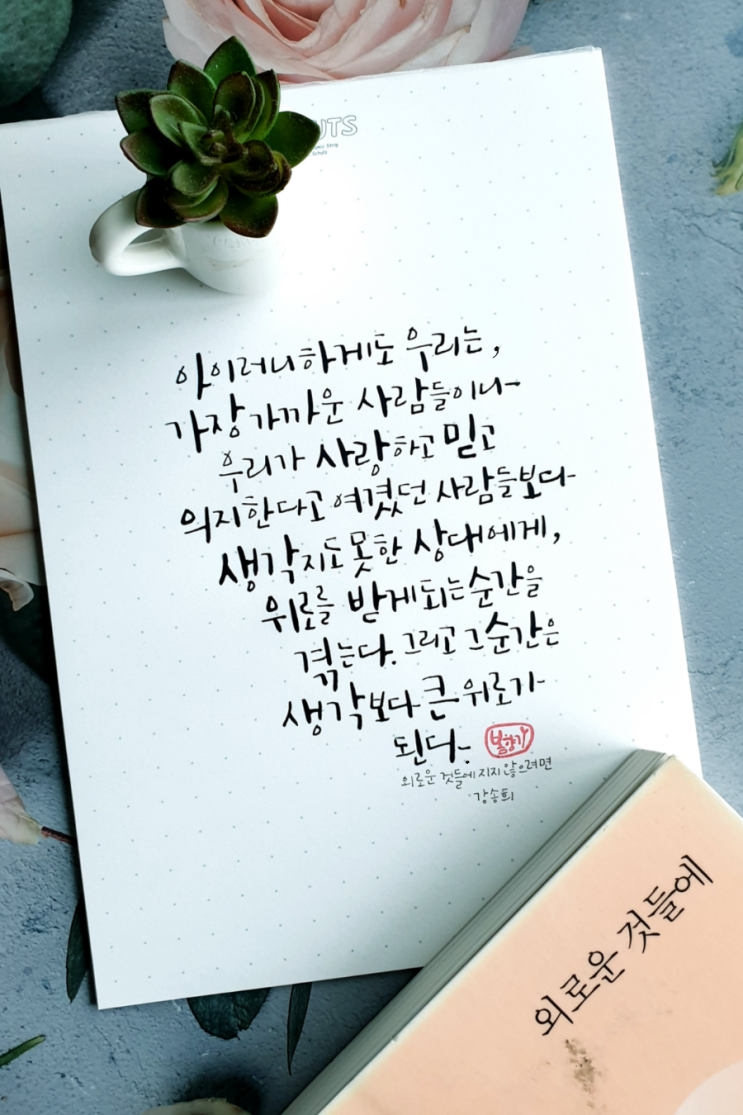 UTS
아이러니하게도 우리는,
가장 가까운 사람들이나
우리가 사랑하고 믿고
의지한다고 여겼던 사람들보다
생각지도 못한 상대에게,
위로를 받게되는 순간을
겪는다. 그리고 그 순간은
생각보다 큰 위로가
된다.
외로운 것들에 지지 않으려면
강송희
외로운 것들에